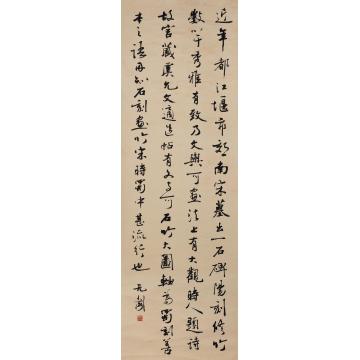 近年都江堰市郊南宋墓出一石碑陽刻修竹
數竿秀雅有致乃文與可畫法上有大觀時人題詩
故宮藏虞允文適造帖有文與可石竹大圖軸為蜀刻善
本之語因知石刻畫竹宋時蜀中甚流行也